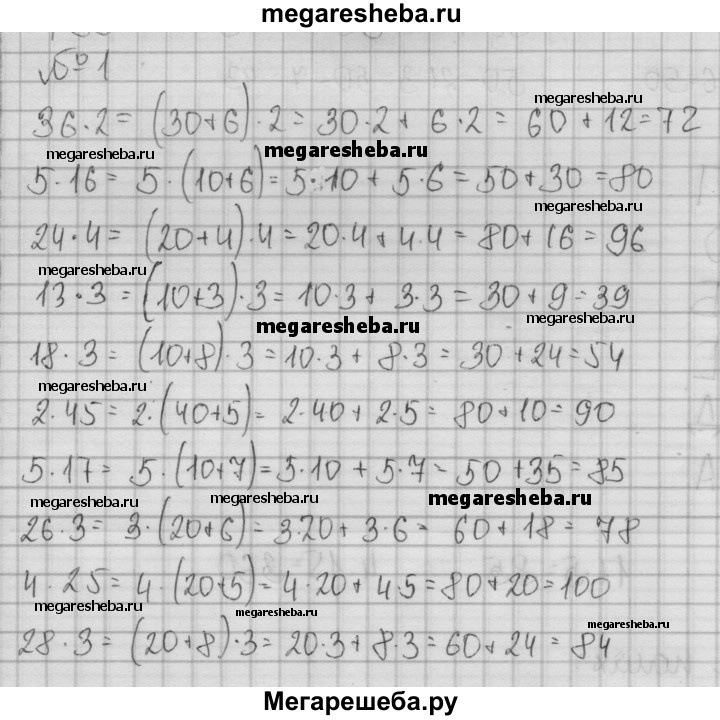 megaresheba.ru
№ 1
megaresheba.ru
36·2= (30+6)·2= 30·2+ 6·2= 60+12=72
megaresheba.ru megaresheba.ru
5·16= 5·(10+6)=5·10+5·6=50+30=80
megaresheba.ru
24·4= (20+4)·4=20·4+4·4=80+16=96
megaresheba.ru
13·3=(10+3)·3=10·3+3·3=30+9=39
megaresheba.ru megaresheba.ru
18·3=(10+8)·3=10·3+8·3=30+24=54
megaresheba.ru
2·45=2·(40+5)=2·40+2·5=80+10=90
5·17=5·(10+7)=5·10+5·7=50+35=85
megaresheba.ru megaresheba.ru megaresheba.ru
26·3=3·(20+6)=3·20+3·6=60+18=78
4·25=4·(20+5)=4·20+4·5=80+20=100
megaresheba.ru megaresheba.ru
28·3=(20+8)·3=20·3+8·3=60+24=84
megaresheba.ru
Мегарешеба.ру